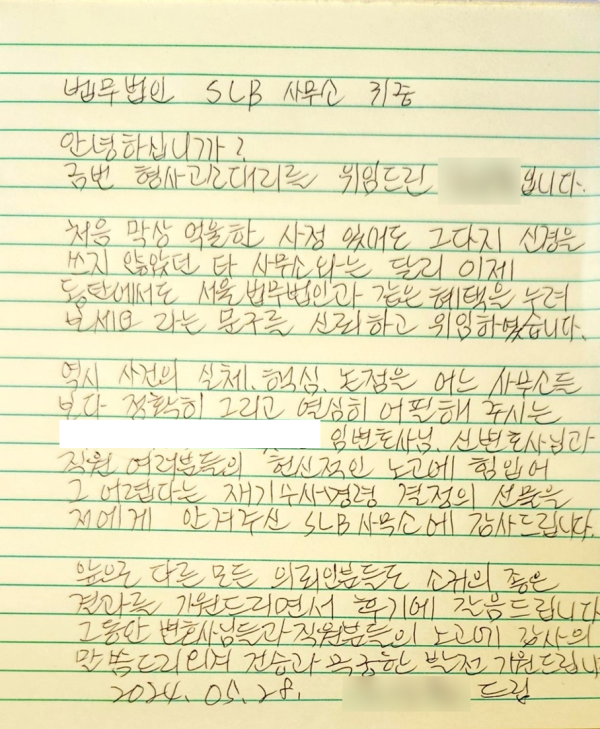 법무법인 SLB 사무소 귀중
안녕하십니까?
금번 형사고소대리를 위임드린 입니다.
처음 막상 억울한 사정 있어도 그다지 신경을
쓰지 않았던 타 사무소와는 달리 이제
동탄에서도 서울 법무법인과 같은 혜택을 누려
보세요 라는 문구를 신뢰하고 위임하였습니다.
역시 사건의 실체, 핵심, 논점을 어느 사무소들
보다 정확히 그리고 열심히 어필해 주시는
임변호사님, 신변호사님과
직원 여러분들의 헌신적인 노고에 힘입어
그 어렵다는 재기수사명령 결정의 선물을
저에게 안겨주신 SLB 사무소에 감사드립니다.
앞으로 다른 모든 의뢰인분들도 소귀의 좋은
결과를 기원드리면서 후기에 갈음드립니다
그동안 변호사님들과 직원분들의 노고에 감사의
말씀드리오며 건승과 무궁한 발전 기원드립니
2024. 05. 28. 드림